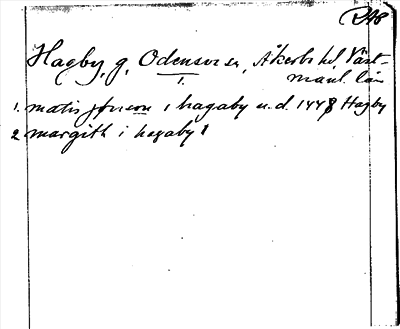 Hagby, g, Odensvi sn, Åkerbo hd, Väst-
manl. län
1.
1. matis jönson i hagaby u.d. 1448 Hagby
2 margith i hagaby 1